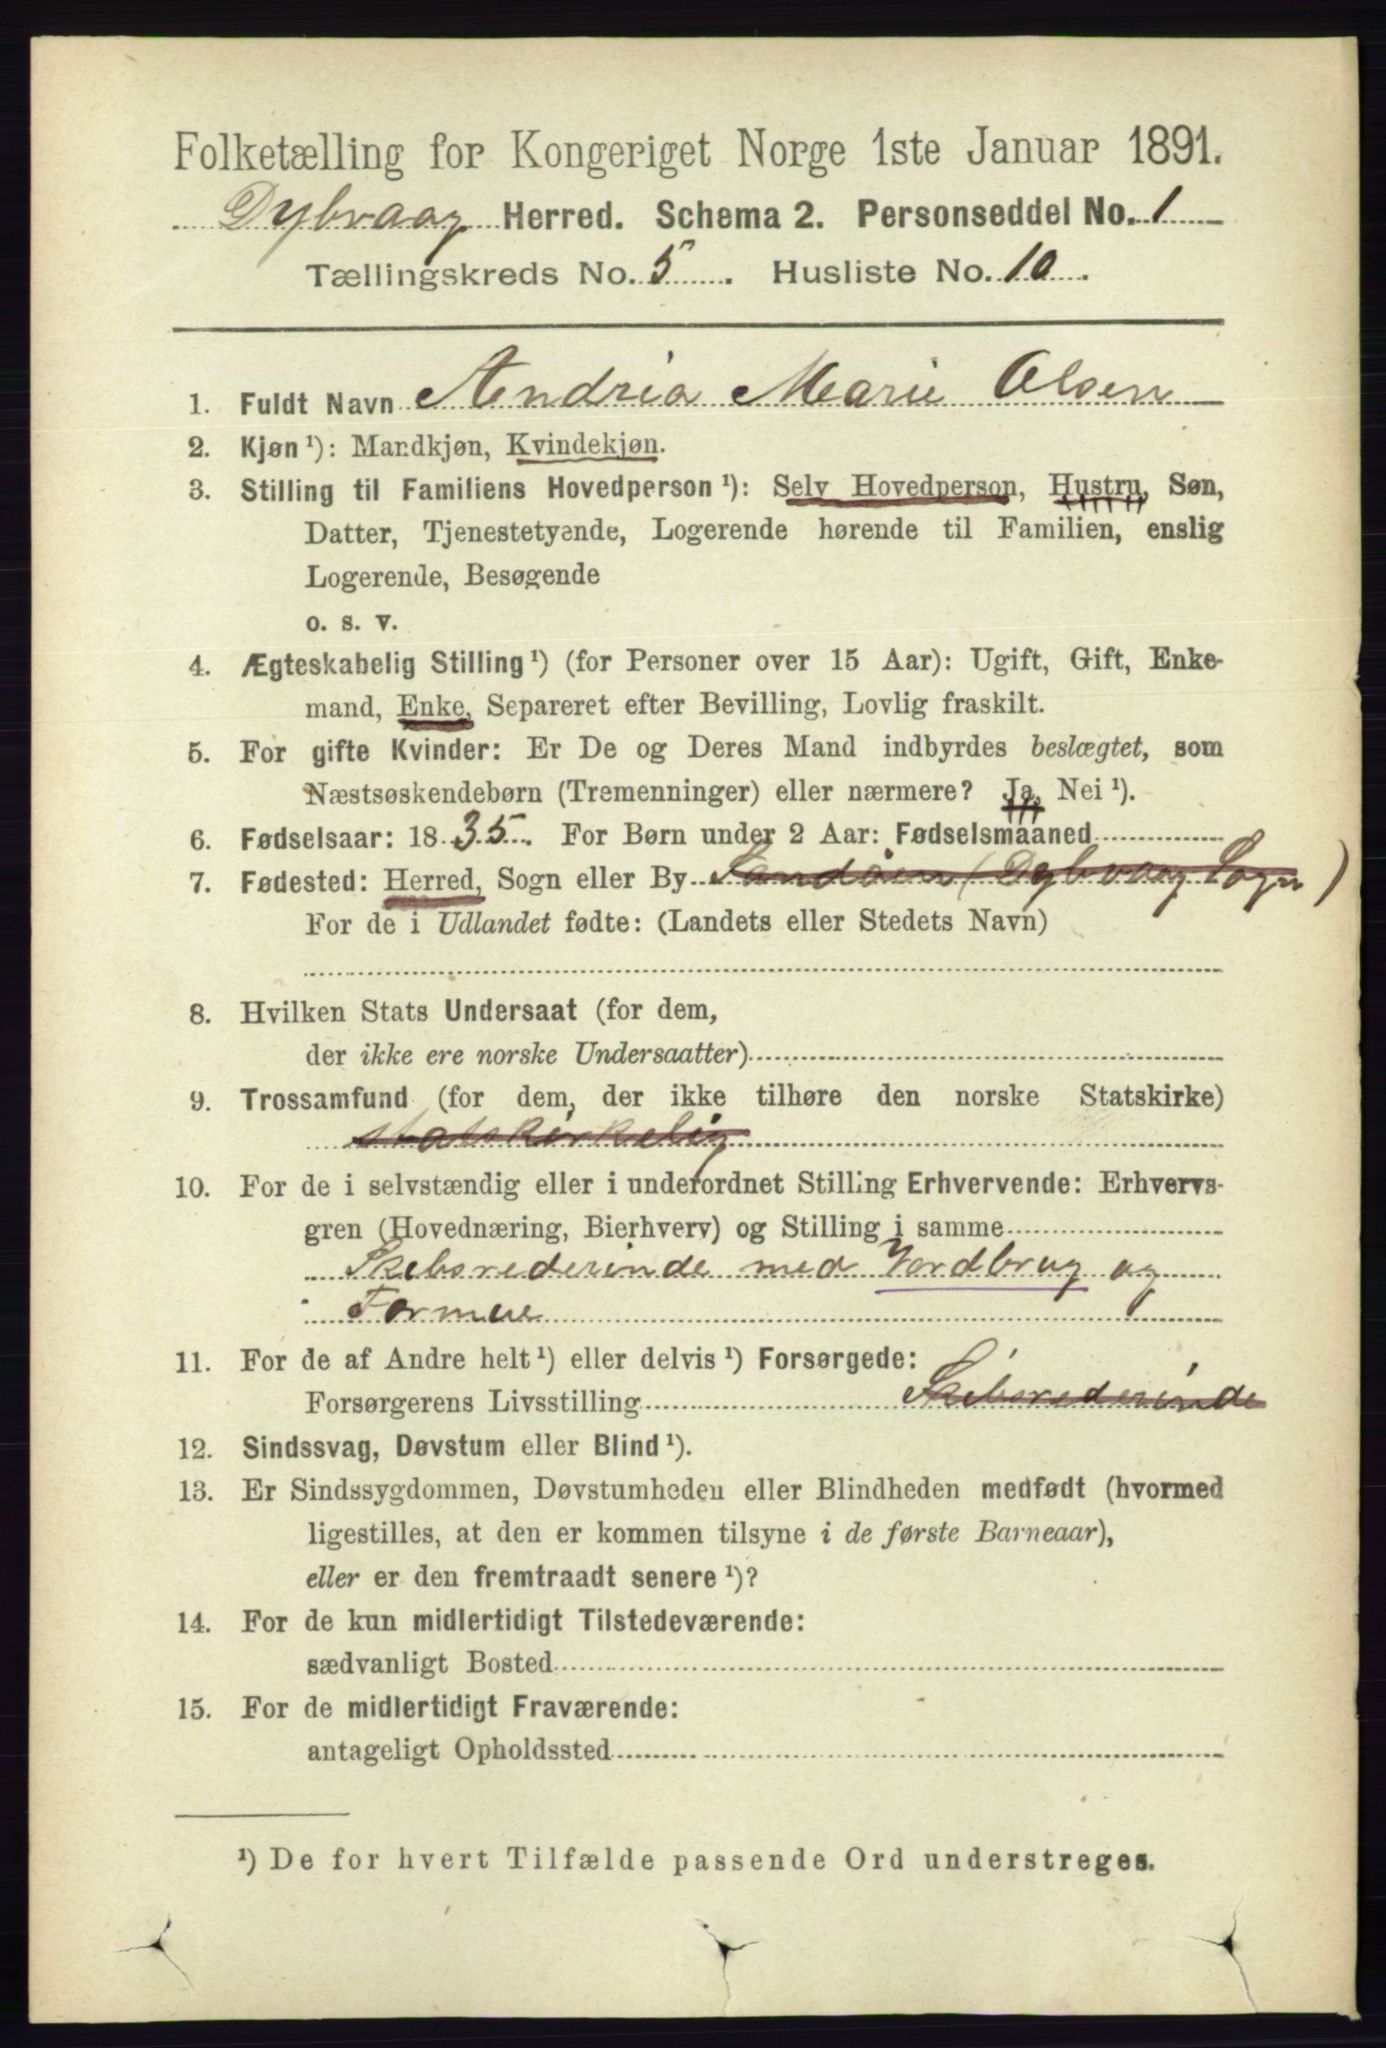 Folketælling for Kongeriget Norge 1ste Januar 1891.
Dybvaag Herred. Schema 2. Personseddel No. 1
Tællingskreds No. 5. Husliste No. 10.
1. Fuldt Navn Andria Marie Olsen
2. Kjøn ¹): Mandkjøn, Kvindekjøn.
3. Stilling til Familiens Hovedperson ¹): Selv Hovedperson, Hustru, Søn,
Datter, Tjenestetyende, Logerende hørende til Familien, enslig
Logerende, Besøgende
o. s. v.
4. Ægteskabelig Stilling ¹) (for Personer over 15 Aar): Ugift, Gift, Enke-
mand, Enke, Separeret efter Bevilling, Lovlig fraskilt.
5. For gifte Kvinder: Er De og Deres Mand indbyrdes beslægtet, som
Næstsøskendebørn (Tremenninger) eller nærmere? Ja, Nei ¹).
6. Fødselsaar: 1835. For Børn under 2 Aar: Fødselsmaaned
7. Fødested: Herred, Sogn eller By Sandøen (Dybvaag Sogn)
For de i Udlandet fødte: (Landets eller Stedets Navn)
8. Hvilken Stats Undersaat (for dem,
der ikke ere norske Undersaatter)
9. Trossamfund (for dem, der ikke tilhøre den norske Statskirke)
statskirkelig
10. For de i selvstændig eller i underordnet Stilling Erhvervende: Erhvervs-
gren (Hovednæring, Bierhverv) og Stilling i samme
Skibsrederinde med Jordbrug og
Formue
11. For de af Andre helt ¹) eller delvis ¹) Forsørgede:
Forsørgerens Livsstilling Skibsrederinde
12. Sindssvag, Døvstum eller Blind ¹).
13. Er Sindssygdommen, Døvstumheden eller Blindheden medfødt (hvormed
ligestilles, at den er kommen tilsyne i de første Barneaar),
eller er den fremtraadt senere ¹)?
14. For de kun midlertidigt Tilstedeværende:
sædvanligt Bosted
15. For de midlertidigt Fraværende:
antageligt Opholdssted
¹) De for hvert Tilfælde passende Ord understreges.